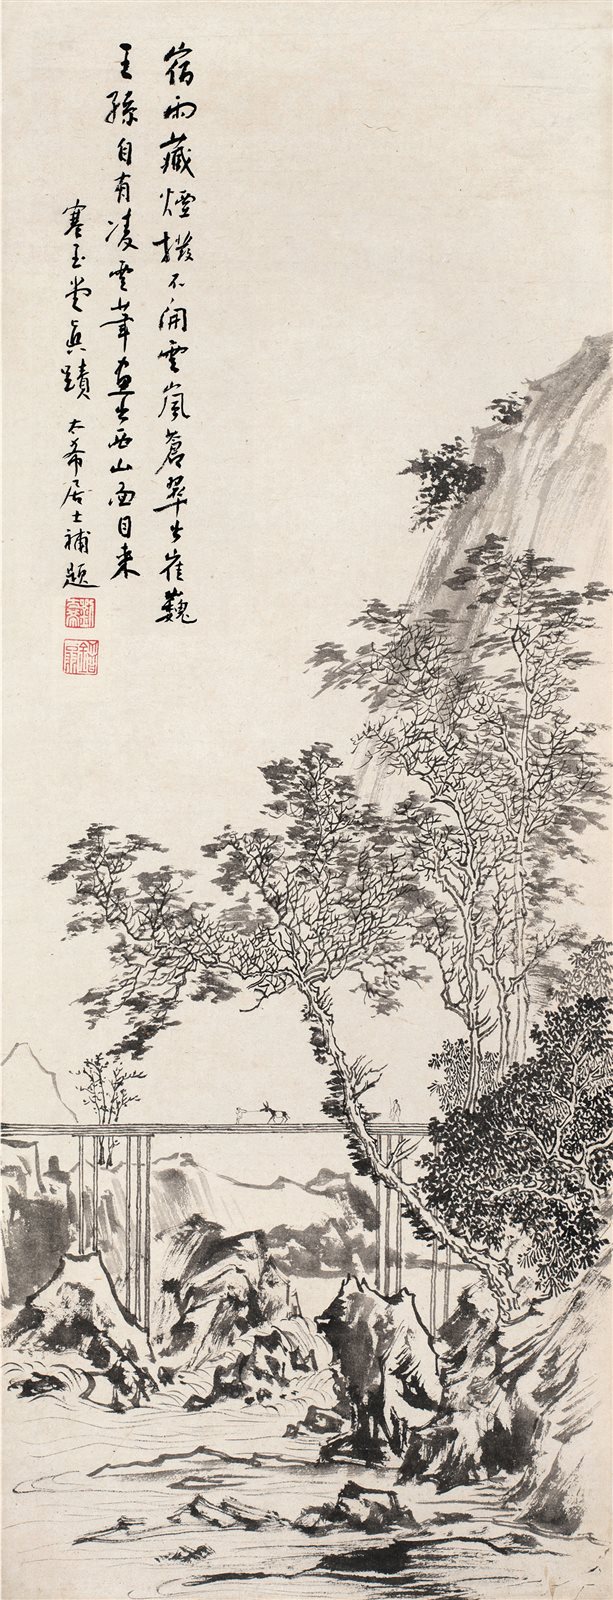 宿雨藏煙撥不開雲嵐蒼翠出崔巍
王孫自有凌雲筆畫出西山面目來
寒玉堂眞蹟 太希居士補題